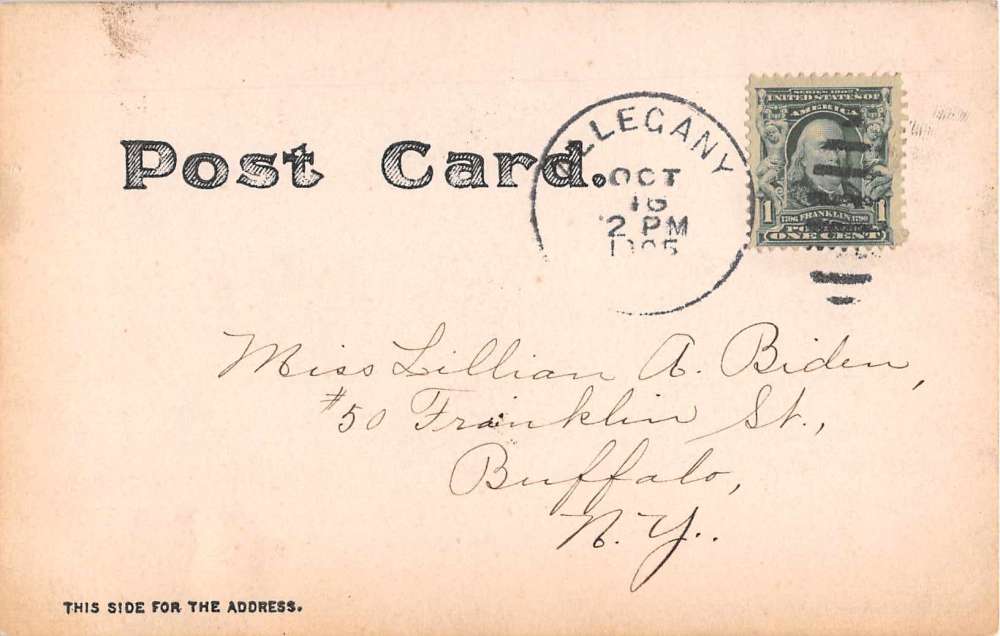 Post Card.
ALLEGANY
OCT
16
2 PM
1905
SERIES 1902
UNITED STATES OF
AMERICA
1
1706 FRANKLIN 1790
1
POSTAGE
ONE CENT
Miss Lillian A. Biden,
#50 Franklin St.,
Buffalo,
N.Y..
THIS SIDE FOR THE ADDRESS.